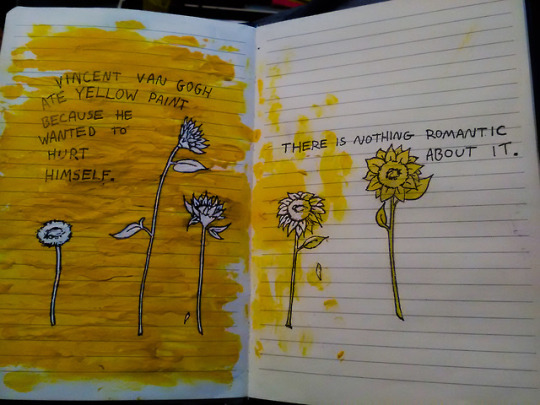 VINCENT VAN GOGH
ATE YELLOW PAINT
BECAUSE HE
WANTED TO
HURT
HIMSELF.
THERE IS NOTHING ROMANTIC
ABOUT IT.